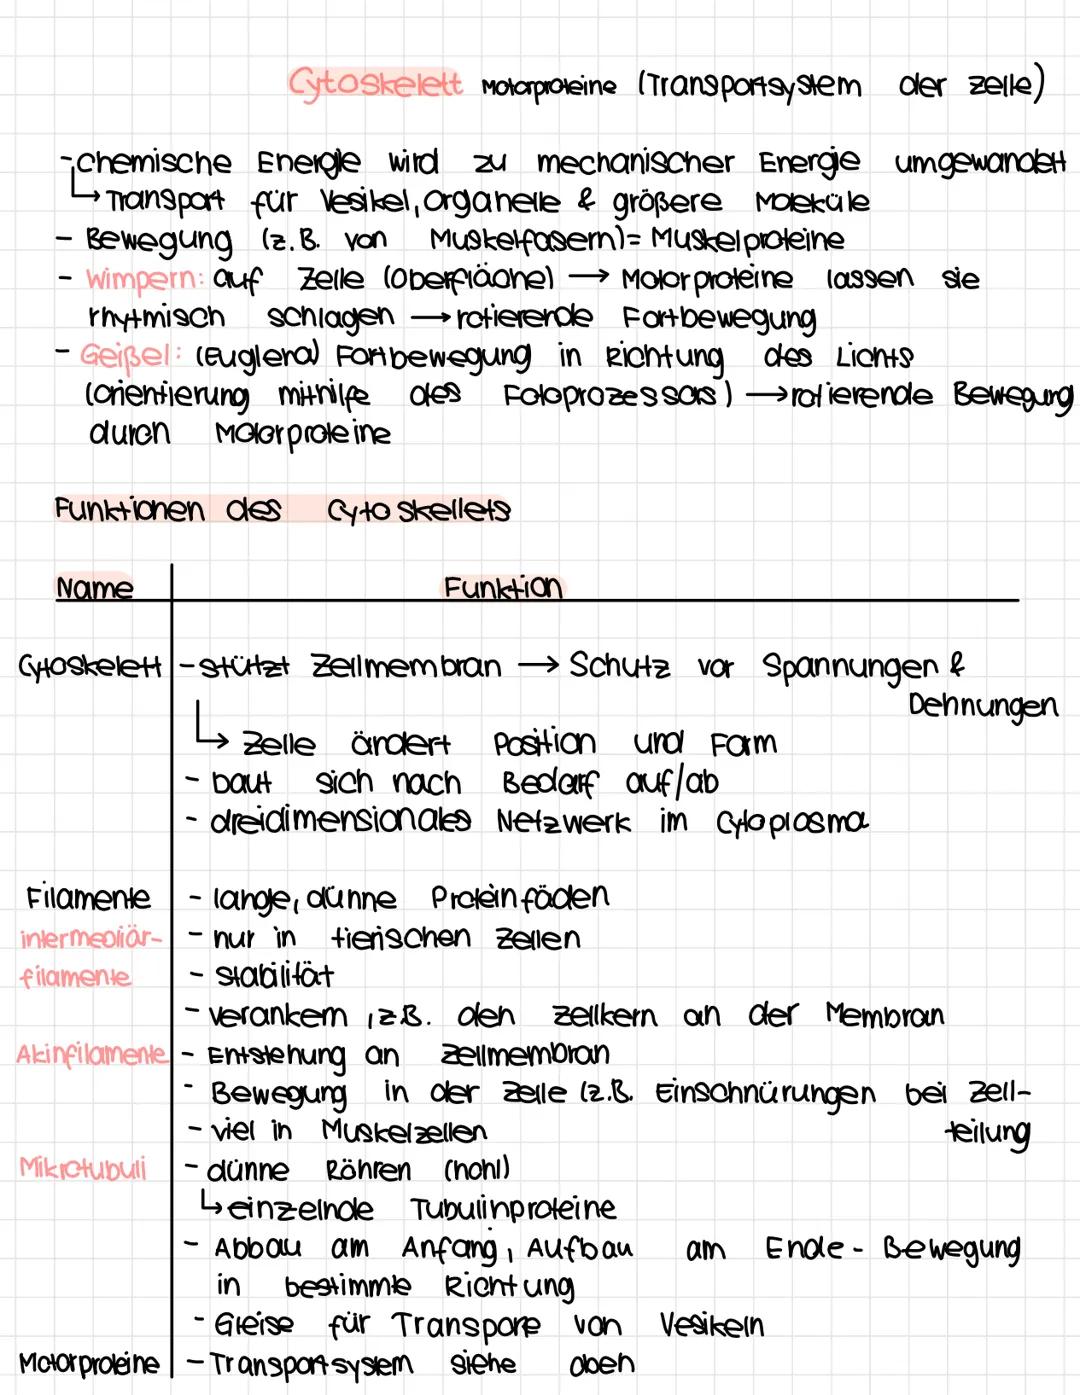 Cytoskelett Motorproteine (Transportsystem der Zelle)
- chemische Energie wird zu mechanischer Energie umgewandelt
↳ Transport für Vesikel, Organelle & größere Moleküle
- Bewegung (z.B. von Muskelfasern) = Muskelproteine
- Wimpern: auf Zelle (Oberfläche) → Motorproteine lassen sie
rhytmisch schlagen → rotierende Fortbewegung
- Geißel: (Euglena) Fortbewegung in Richtung des Lichts
(orientierung mithilfe des Fotoprozessors) → rotierende Bewegung
durch Motorproteine
Funktionen des Cytoskellets
Name Funktion
Cytoskelett - stützt Zellmembran → Schutz vor Spannungen &
Dehnungen
↳ Zelle ändert Position und Form
- baut sich nach Bedarf auf/ab
- dreidimensionales Netzwerk im Cytoplasma
Filamente - lange, dünne Proteinfäden
intermediär- - nur in tierischen Zellen
filamente - stabilität
- verankern, z.B. den Zellkern an der Membran
Akinfilamente - Entstehung an Zellmembran
- Bewegung in der Zelle (z.B. Einschnürungen bei Zell-
- viel in Muskelzellen teilung
Mikrotubuli - dünne Röhren (hohl)
↳ einzelnde Tubulinproteine
- Abbau am Anfang, Aufbau am Ende - Bewegung
in bestimmte Richtung
- Gleise für Transpore von Vesikeln
Motorproteine - Transportsystem siehe oben